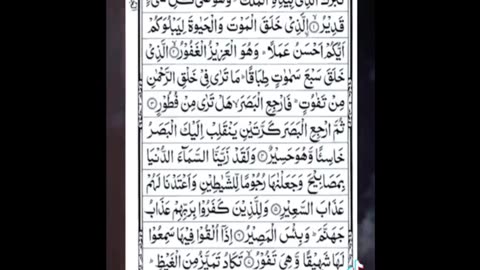 تَبٰرَكَ الَّذِىْ بِيَدِهِ الْمُلْكُ ؗ وَهُوَ عَلٰى كُلِّ شَىْءٍ
قَدِيْرُ ۙ الَّذِىْ خَلَقَ الْمَوْتَ وَالْحَيٰوةَ لِيَبْلُوَكُمْ
اَيُّكُمْ اَحْسَنُ عَمَلًا ؕ وَهُوَ الْعَزِيْزُ الْغَفُوْرُ ۙ الَّذِىْ
خَلَقَ سَبْعَ سَمٰوٰتٍ طِبَاقًا ؕ مَا تَرٰى فِىْ خَلْقِ الرَّحْمٰنِ
مِنْ تَفٰوُتٍ ؕ فَارْجِعِ الْبَصَرَ ۙ هَلْ تَرٰى مِنْ فُطُوْرٍ
ثُمَّ ارْجِعِ الْبَصَرَ كَرَّتَيْنِ يَنْقَلِبْ اِلَيْكَ الْبَصَرُ
خَاسِئًا وَّهُوَ حَسِيْرٌ وَلَقَدْ زَيَّنَّا السَّمَآءَ الدُّنْيَا
بِمَصَابِيْحَ وَجَعَلْنٰهَا رُجُوْمًا لِّلشَّيٰطِيْنِ وَاَعْتَدْنَا لَهُمْ
عَذَابَ السَّعِيْرِ وَلِلَّذِيْنَ كَفَرُوْا بِرَبِّهِمْ عَذَابُ
جَهَنَّمَ ؕ وَبِئْسَ الْمَصِيْرُ اِذَآ اُلْقُوْا فِيْهَا سَمِعُوْا
لَهَا شَهِيْقًا وَّهِىَ تَفُوْرُ ۙ تَكَادُ تَمَيَّزُ مِنَ الْغَيْظِ ؕ